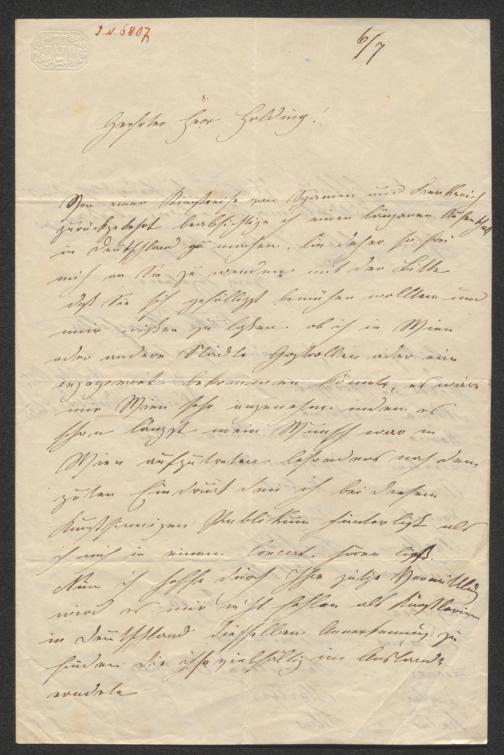 I.N. 6807
6/7
BATH
Geehrter Herr Holding!
Von einer Kunstreise von Spanien und Frankreich
zurückgekehrt beabsichtige ich einen längeren Aufenthalt
in Deutschland zu machen, bin daher so frei
mich an Sie zu wenden mit der Bitte
daß Sie sich gefälligst bemühen wollten und
mir wissen zu laßen ob ich in Wien
oder andere Städte Gastrollen oder ein
engagement bekommen könnte, es wäre
mir Wien sehr angenehm indem es
schon längst mein Wunsch war in
Wien aufzutreten besonders nach dem
guten Eindruck den ich bei diesem
kunstsinnigen Publikum hinterließ als
ich mich in einem Concert hören ließ.
Nun ich hoffe durch Ihre gütige Vermittlung
wird es mir nicht fehlen als Künstlerin
in Deutschland dieselbe Anerkennung zu
finden die ich so vielfältig im Auslande
erndete